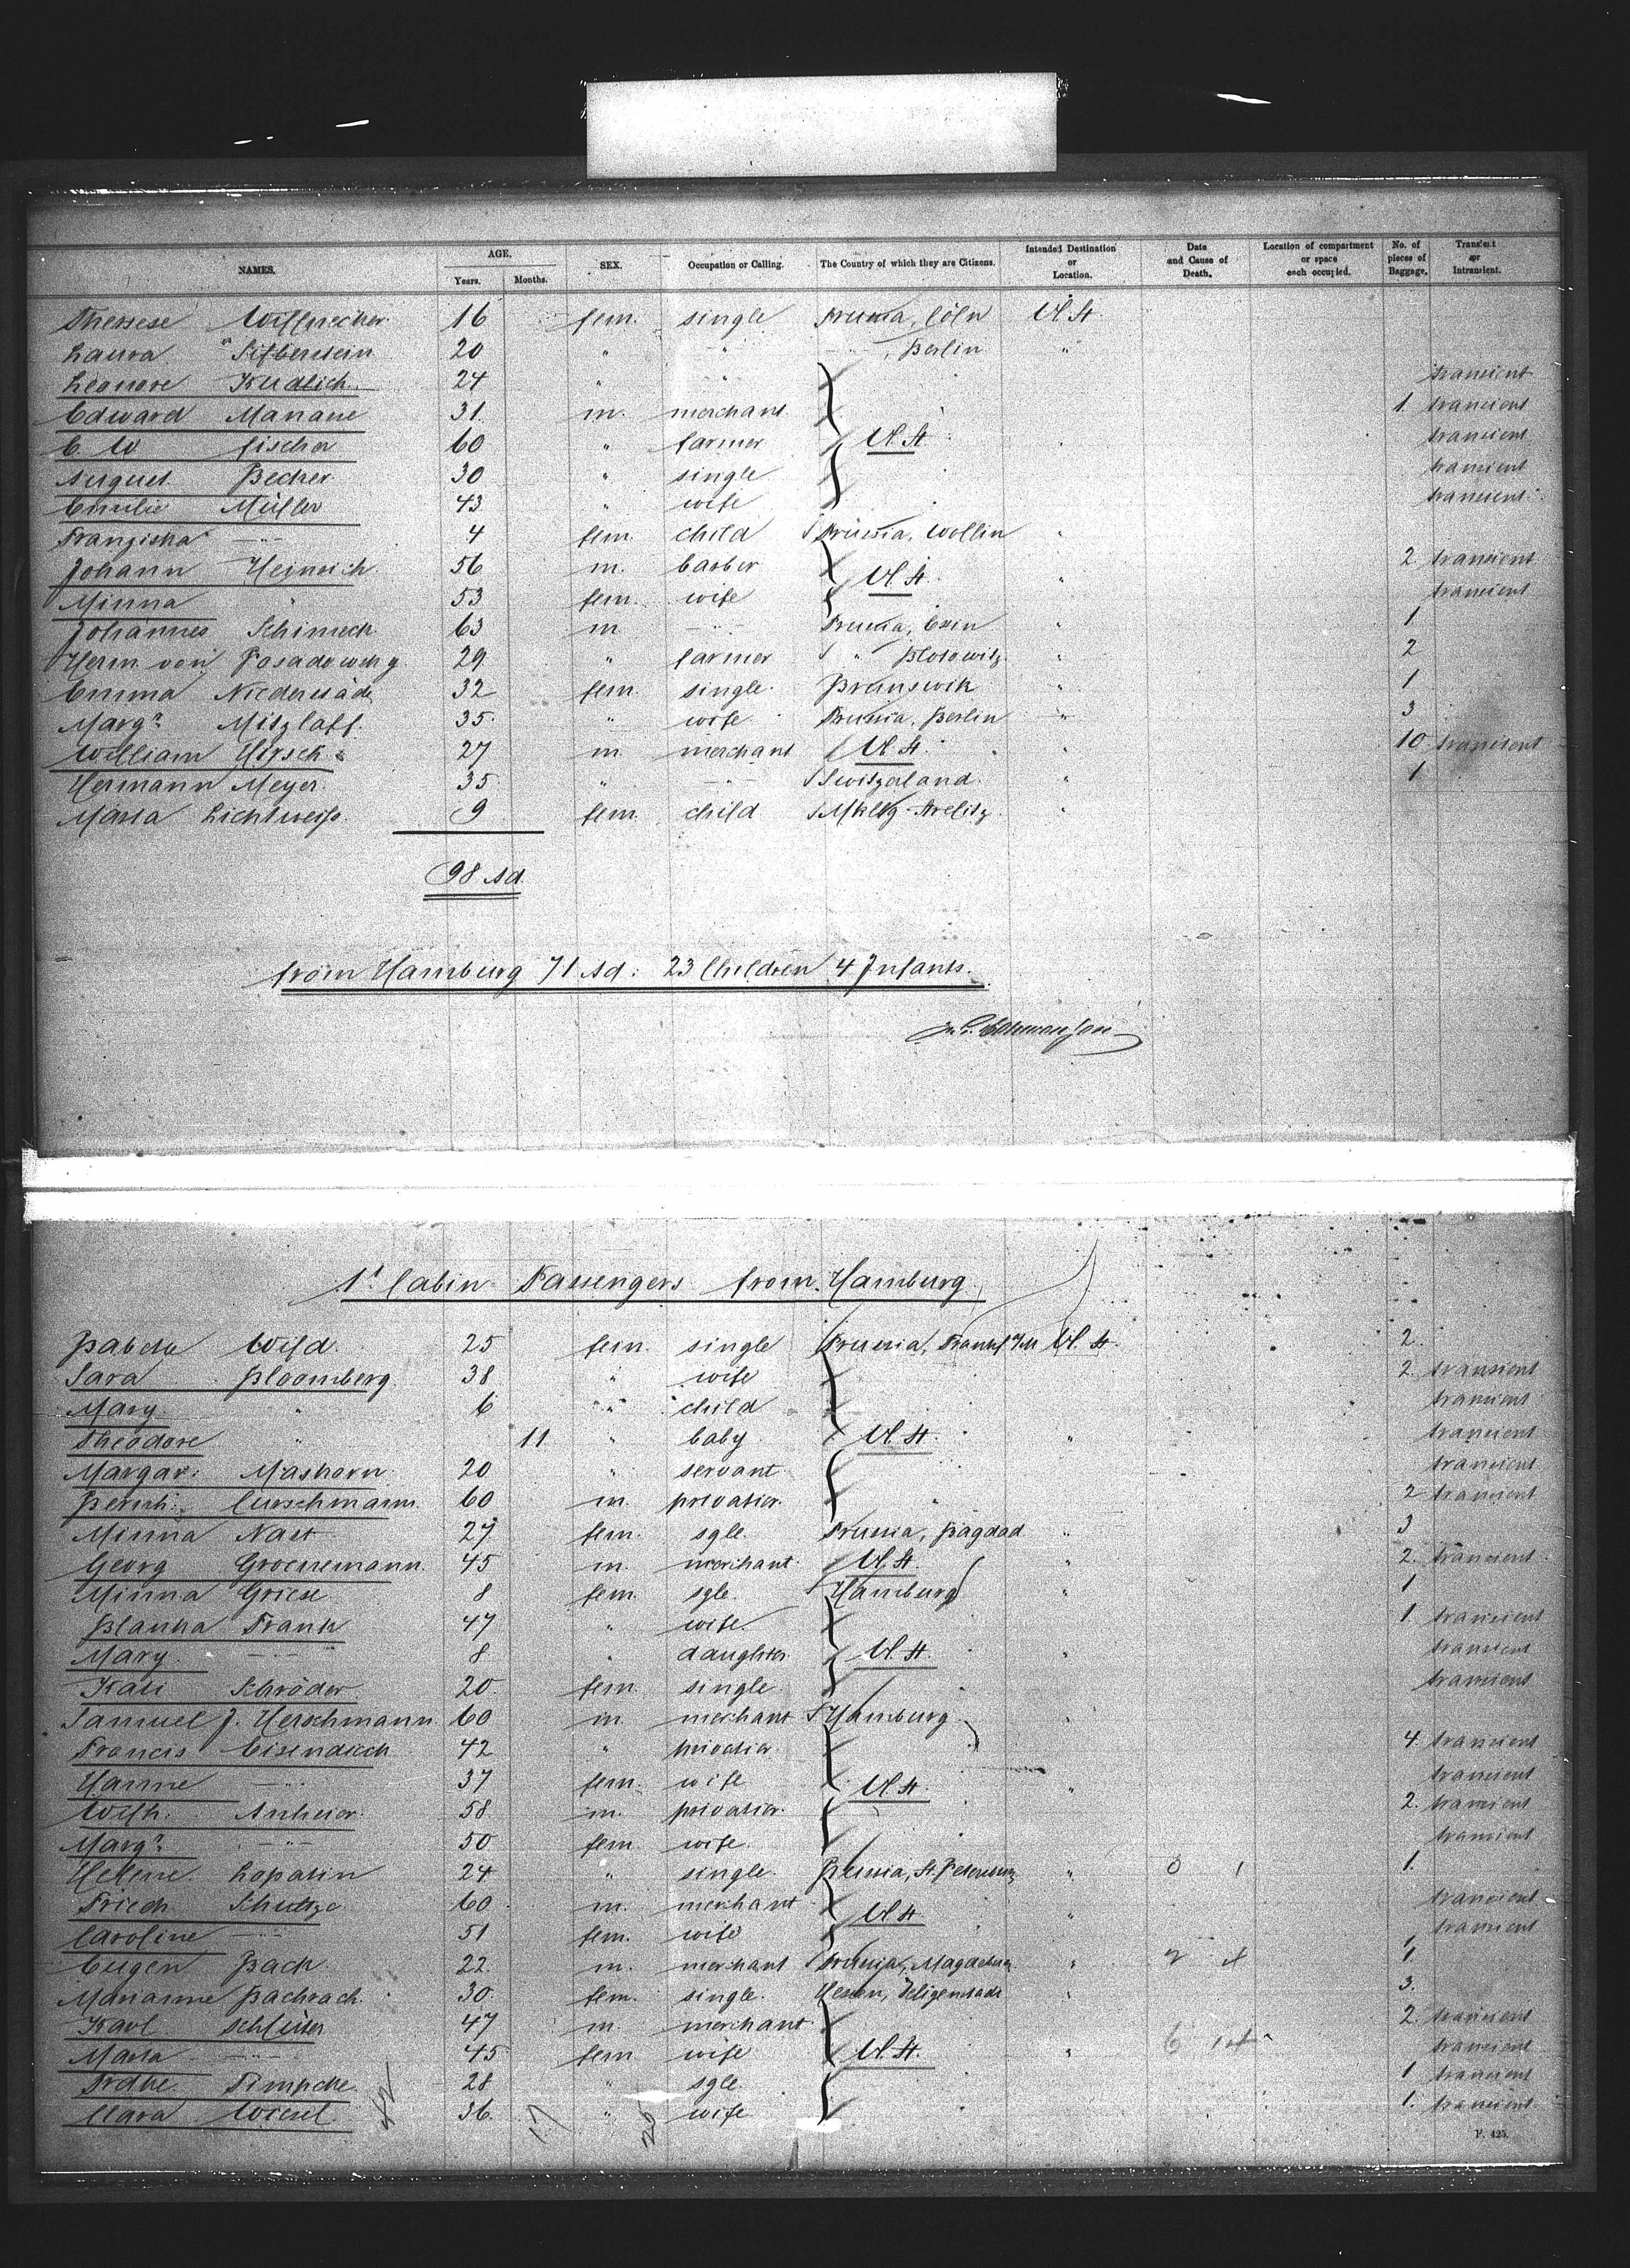 NAMES. AGE. Years. Months. SEX. Occupation or Calling. The Country of which they are Citizens. Intended Destination or Location. Date and Cause of Death. Location of compartment or space each occupied. No. of pieces of Baggage. Transient or Intransient.
16 fem. single Prussia, Cöln U. St.
Laura 20 " " " , Berlin "
Leonore Kudlich 24 " " transient
Edward Manasse 31 m. merchant 1 transient
C. W. Fischer 60 " farmer U. St. transient
August Becker 30 " single transient
Emilie Müller 43 " wife transient
Franziska —"— 4 fem. child Prussia, Wollin "
Johann Heinrich 56 m. barber U. St. " 2 transient
Minna " 53 fem. wife transient
Johannes Schimeck 63 m —"— Prussia, Exin " 1
Herm. von Posadowsky 29 " farmer " "  2
Emma 32 fem. single Brunswik " 1
Marg? Mitzlaff. 35 " wife Prussia, Berlin " 3
William Hirsch 27 m merchant U. St. " 10 transient
Hermann Meyer 35 " —"— Switzerland " 1
Maria Lichtweiss 9 fem. child Mklbg. Strelitz "
98 Ad.
from Hamburg 71 Ad: 23 Children 4 Infants.
1t Cabin Passengers from Hamburg
Babette Wild. 25 fem. single Prussia, U. St. 2
Sara Bloomberg 38 " wife 2 transient
Mary " 6 " child transient
Theodore " 11 " baby U. St. " transient
Margar: Mashorn 20 " servant transient
Curschmann 60 m. privatier 2 transient
Minna Nast 27 fem. sgle. Prussia, Bagdad " 3
Georg Groenemann 45 m. merchant U. St. " 2 transient
Minna Griese 8 fem. sgle. Hamburg " 1
Blanka Frank 47 " wife 1 transient
Mary —"— 8 " daughter U. St. " transient
Kati Schröder 20 fem. single transient
Samuel J. Herschmann 60 m. merchant Hamburg "
Francis Eisendieck 42 " privatier 4 transient
Hanne —"— 37 fem. wife U. St. " transient
Wilh. Anheier 58 m. privatier 2 transient
Marg? —"— 50 fem wife transient
Helene Lopatin 24 " single St. Petersburg " 1
Friedr Schultze 60 m. merchant U. St. " transient
Caroline —"— 51 fem. wife transient
Eugen Back 22 m. merchant Prussia, Magdeburg " 1
Marianne Bachrach 30 fem. single. Hessen, Seligenstadt " 3.
Karl Schlüter 47 m. merchant 2 transient
Maria —"— 45 fem wife U. St. " transient
Fredke Timpcke 28 " sgle. 1 transient
Clara Wiesel 36 " wife 1. transient
F. 425.